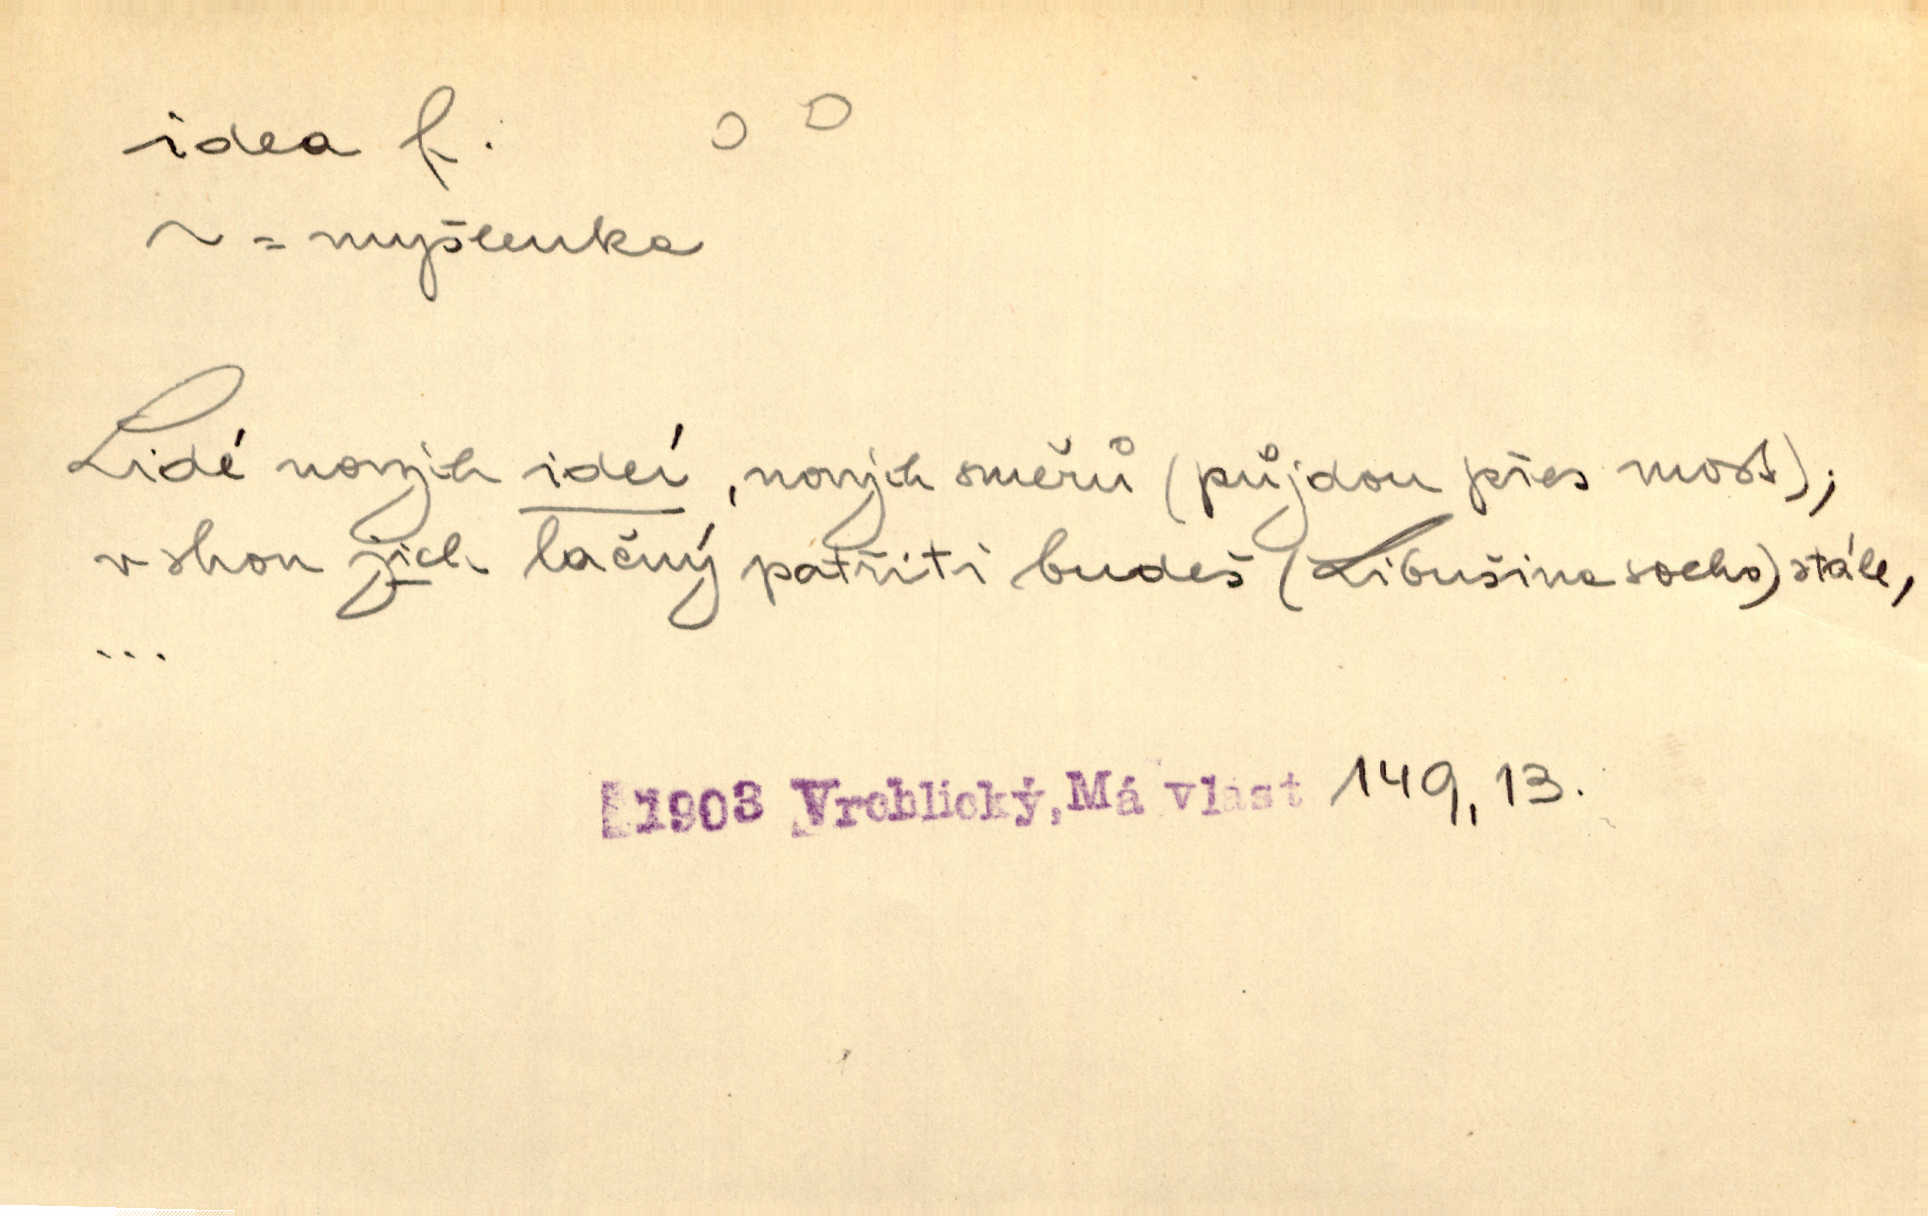 idea f.
~ = myšlenka
Lidé nových ideí, nových směrů (půjdou přes most);
v shon jich lačný patřiti budeš (Libušina socho) stále,
...
1903 Vrchlický, Má vlast 149, 13.